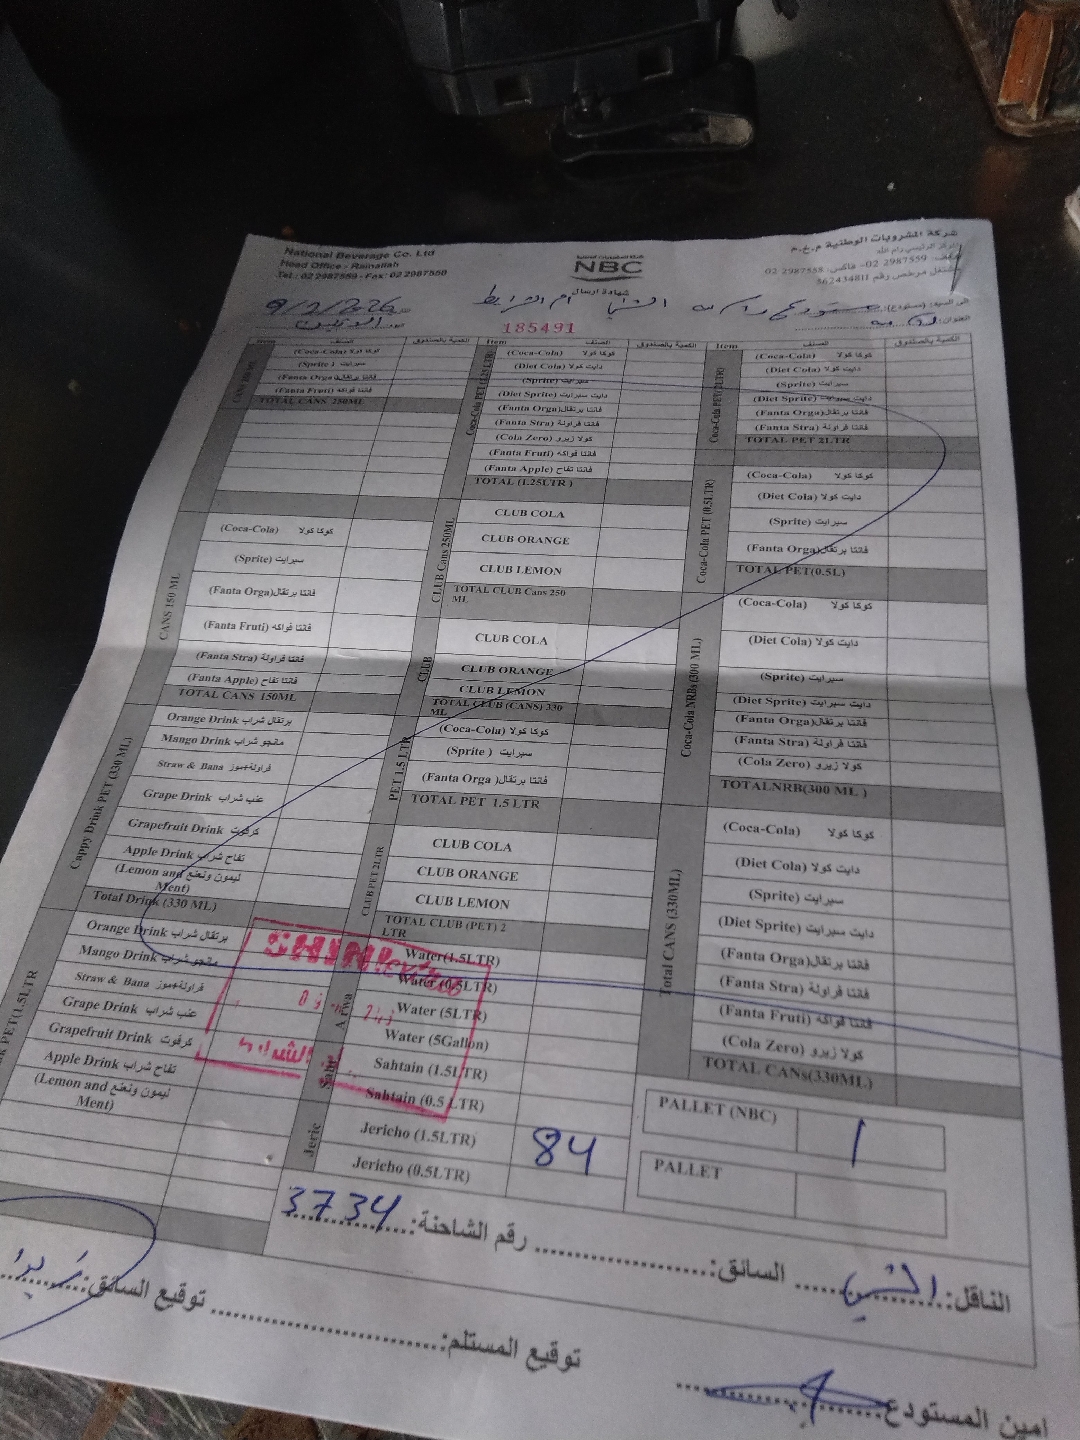 National Beverage Co. Ltd
Head Office - Ramallah
Tel.: 02 2987559 - Fax: 02 2987550
NBC
شركة المشروبات الوطنية م.خ.م
المركز الرئيسي رام الله
هاتف: 2987559 02- فاكس: 2987558 02
مشتغل مرخص رقم 562434811
شهادة ارسال
9/2/2026
الاثنين
العنوان:
185491
Item الصنف الكمية بالصندوق
(Coca-Cola) كوكا كولا
(Sprite) سبرايت
(Fanta Orga) فانتا برتقال
(Fanta Fruti) فانتا فواكه
TOTAL CANS 250ML
CANS 150 ML
(Coca-Cola) كوكا كولا
(Sprite) سبرايت
(Fanta Orga) فانتا برتقال
(Fanta Fruti) فانتا فواكه
(Fanta Stra) فانتا فراولة
(Fanta Apple) فانتا تفاح
TOTAL CANS 150ML
Cappy Drink PET (330 ML)
Orange Drink برتقال شراب
Mango Drink مانجو شراب
Straw & Bana فراولة+موز
Grape Drink عنب شراب
Grapefruit Drink كرفوت
Apple Drink تفاح شراب
(Lemon and ليمون ونعنع
Ment)
Total Drink (330 ML)
PET (1.5LTR
Orange Drink برتقال شراب
Mango Drink مانجو شراب
Straw & Bana فراولة+موز
Grape Drink عنب شراب
Grapefruit Drink كرفوت
Apple Drink تفاح شراب
(Lemon and ليمون ونعنع
Ment)
Item الصنف الكمية بالصندوق
Coca-Cola PET (1.25 LTR)
(Coca-Cola) كوكا كولا
(Diet Cola) دايت كولا
(Sprite) سبرايت
(Diet Sprite) دايت سبرايت
(Fanta Orga) فانتا برتقال
(Fanta Stra) فانتا فراولة
(Cola Zero) كولا زيرو
(Fanta Fruti) فانتا فواكه
(Fanta Apple) فانتا تفاح
TOTAL (1.25LTR )
CLUB Cans 250ML
CLUB COLA
CLUB ORANGE
CLUB LEMON
TOTAL CLUB Cans 250
ML
CLUB
CLUB COLA
CLUB ORANGE
CLUB LEMON
TOTAL CLUB (CANS) 330
ML
PET 1.5 LTR
(Coca-Cola) كوكا كولا
(Sprite ) سبرايت
(Fanta Orga ) فانتا برتقال
TOTAL PET 1.5 LTR
CLUB PET 2LTR
CLUB COLA
CLUB ORANGE
CLUB LEMON
TOTAL CLUB (PET) 2
LTR
Arwa
Water(1.5LTR)
Water (0.5LTR)
Water (5LTR)
Water (5Gallon)
Saht
Sahtain (1.5LTR)
Sahtain (0.5 LTR)
Jeric
Jericho (1.5LTR) 84
Jericho (0.5LTR)
Item الصنف الكمية بالصندوق
Coca-Cola PET(2LTR)
(Coca-Cola) كوكا كولا
(Diet Cola) دايت كولا
(Sprite) سبرايت
(Diet Sprite) دايت سبرايت
(Fanta Orga) فانتا برتقال
(Fanta Stra) فانتا فراولة
TOTAL PET 2LTR
Coca-Cola PET (0.5LTR)
(Coca-Cola) كوكا كولا
(Diet Cola) دايت كولا
(Sprite) سبرايت
(Fanta Orga) فانتا برتقال
TOTAL PET(0.5L)
Coca-Cola NRBs (300 ML)
(Coca-Cola) كوكا كولا
(Diet Cola) دايت كولا
(Sprite) سبرايت
(Diet Sprite) دايت سبرايت
(Fanta Orga) فانتا برتقال
(Fanta Stra) فانتا فراولة
(Cola Zero) كولا زيرو
TOTALNRB(300 ML )
Total CANS (330ML)
(Coca-Cola) كوكا كولا
(Diet Cola) دايت كولا
(Sprite) سبرايت
(Diet Sprite) دايت سبرايت
(Fanta Orga) فانتا برتقال
(Fanta Stra) فانتا فراولة
(Fanta Fruti) فانتا فواكه
(Cola Zero) كولا زيرو
TOTAL CANs(330ML)
PALLET (NBC) 1
PALLET
الناقل: السائق: رقم الشاحنة: 3734
توقيع المستلم: توقيع السائق:
امين المستودع